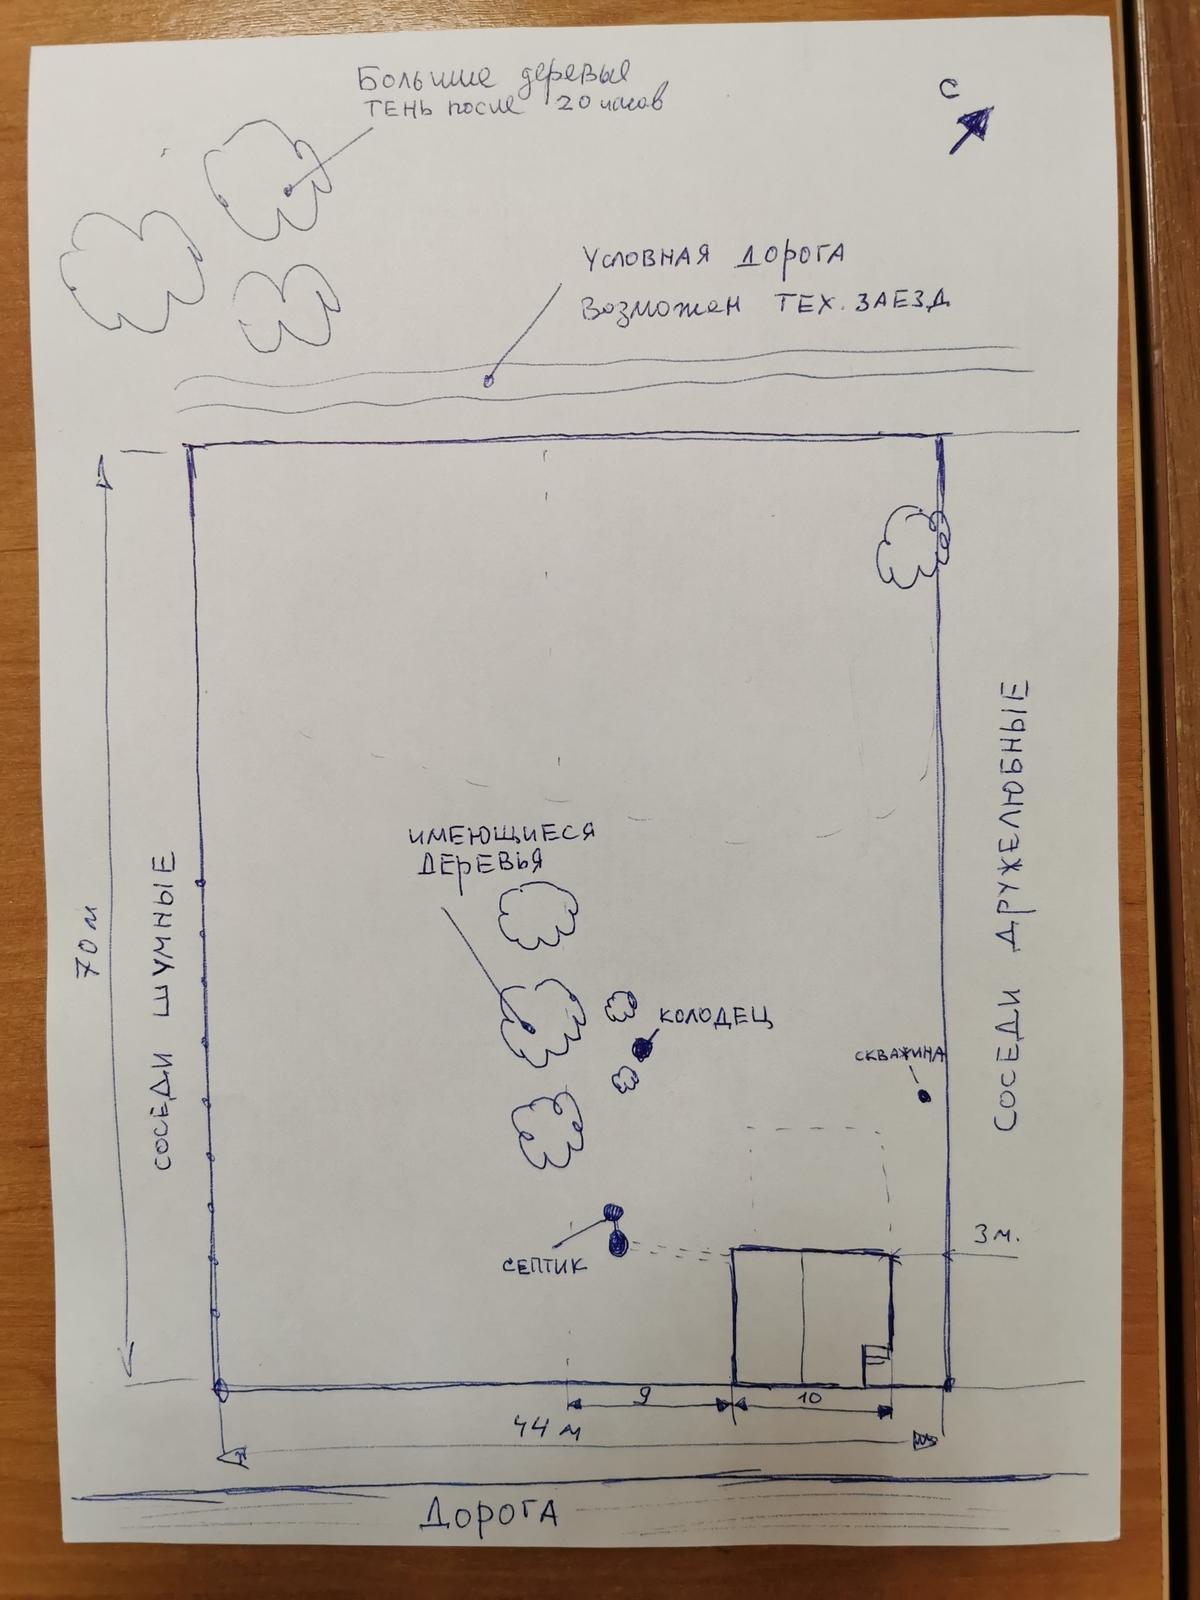 Большие деревья
тень после 20 часов
С
Условная дорога
Возможен тех. заезд
имеющиеся
деревья
70 м
соседи шумные
колодец
скважина
соседи дружелюбные
3 м.
септик
9
10
44 м
Дорога